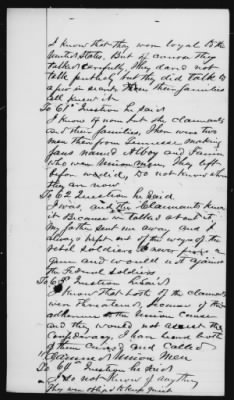 I know that they were loyal to the
United States. But of course they
talked carefully. They dared not
talk publicly but they did talk to
a few in secret. Then their families
all knew it
To 61st Question he said
I know of none but the claimants
and their families. There were two
men there from Tennessee making
jars named Alboy and
who were Union men. They left
before we did. Do not know where
they are now
To 62 Question he said
I was and the Claimants knew
it Because we talked about it.
My father sent me away and I
always kept out of the way of the
rebel soldiers
gun and would not against
the Federal soldiers
To 63d Question he said
I know that both of the claimants
were threatened because of their
adherence to the Union cause
and they would not assist the
Confederacy. I have heard both
of them cursed and called
Union Men
To 64th Question he said
I do not know of anything
They were obliged to keep quiet